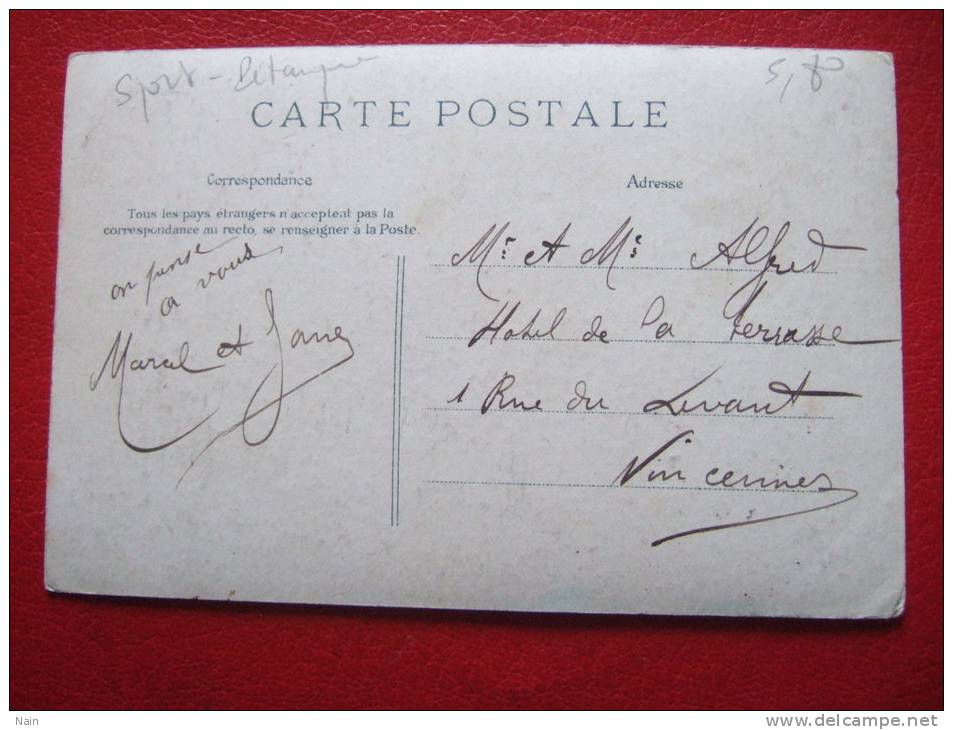 Sport - Pétanque
5,80
CARTE POSTALE
Correspondance
Tous les pays étrangers n'acceptent pas la
correspondance au recto, se renseigner à la Poste.
on pense
a vous
Marcel et Jane
Adresse
Mr et Me Alfred
Hotel de la Terrasse
1 Rue du Levant
Vincennes
Nain
www.delcampe.net